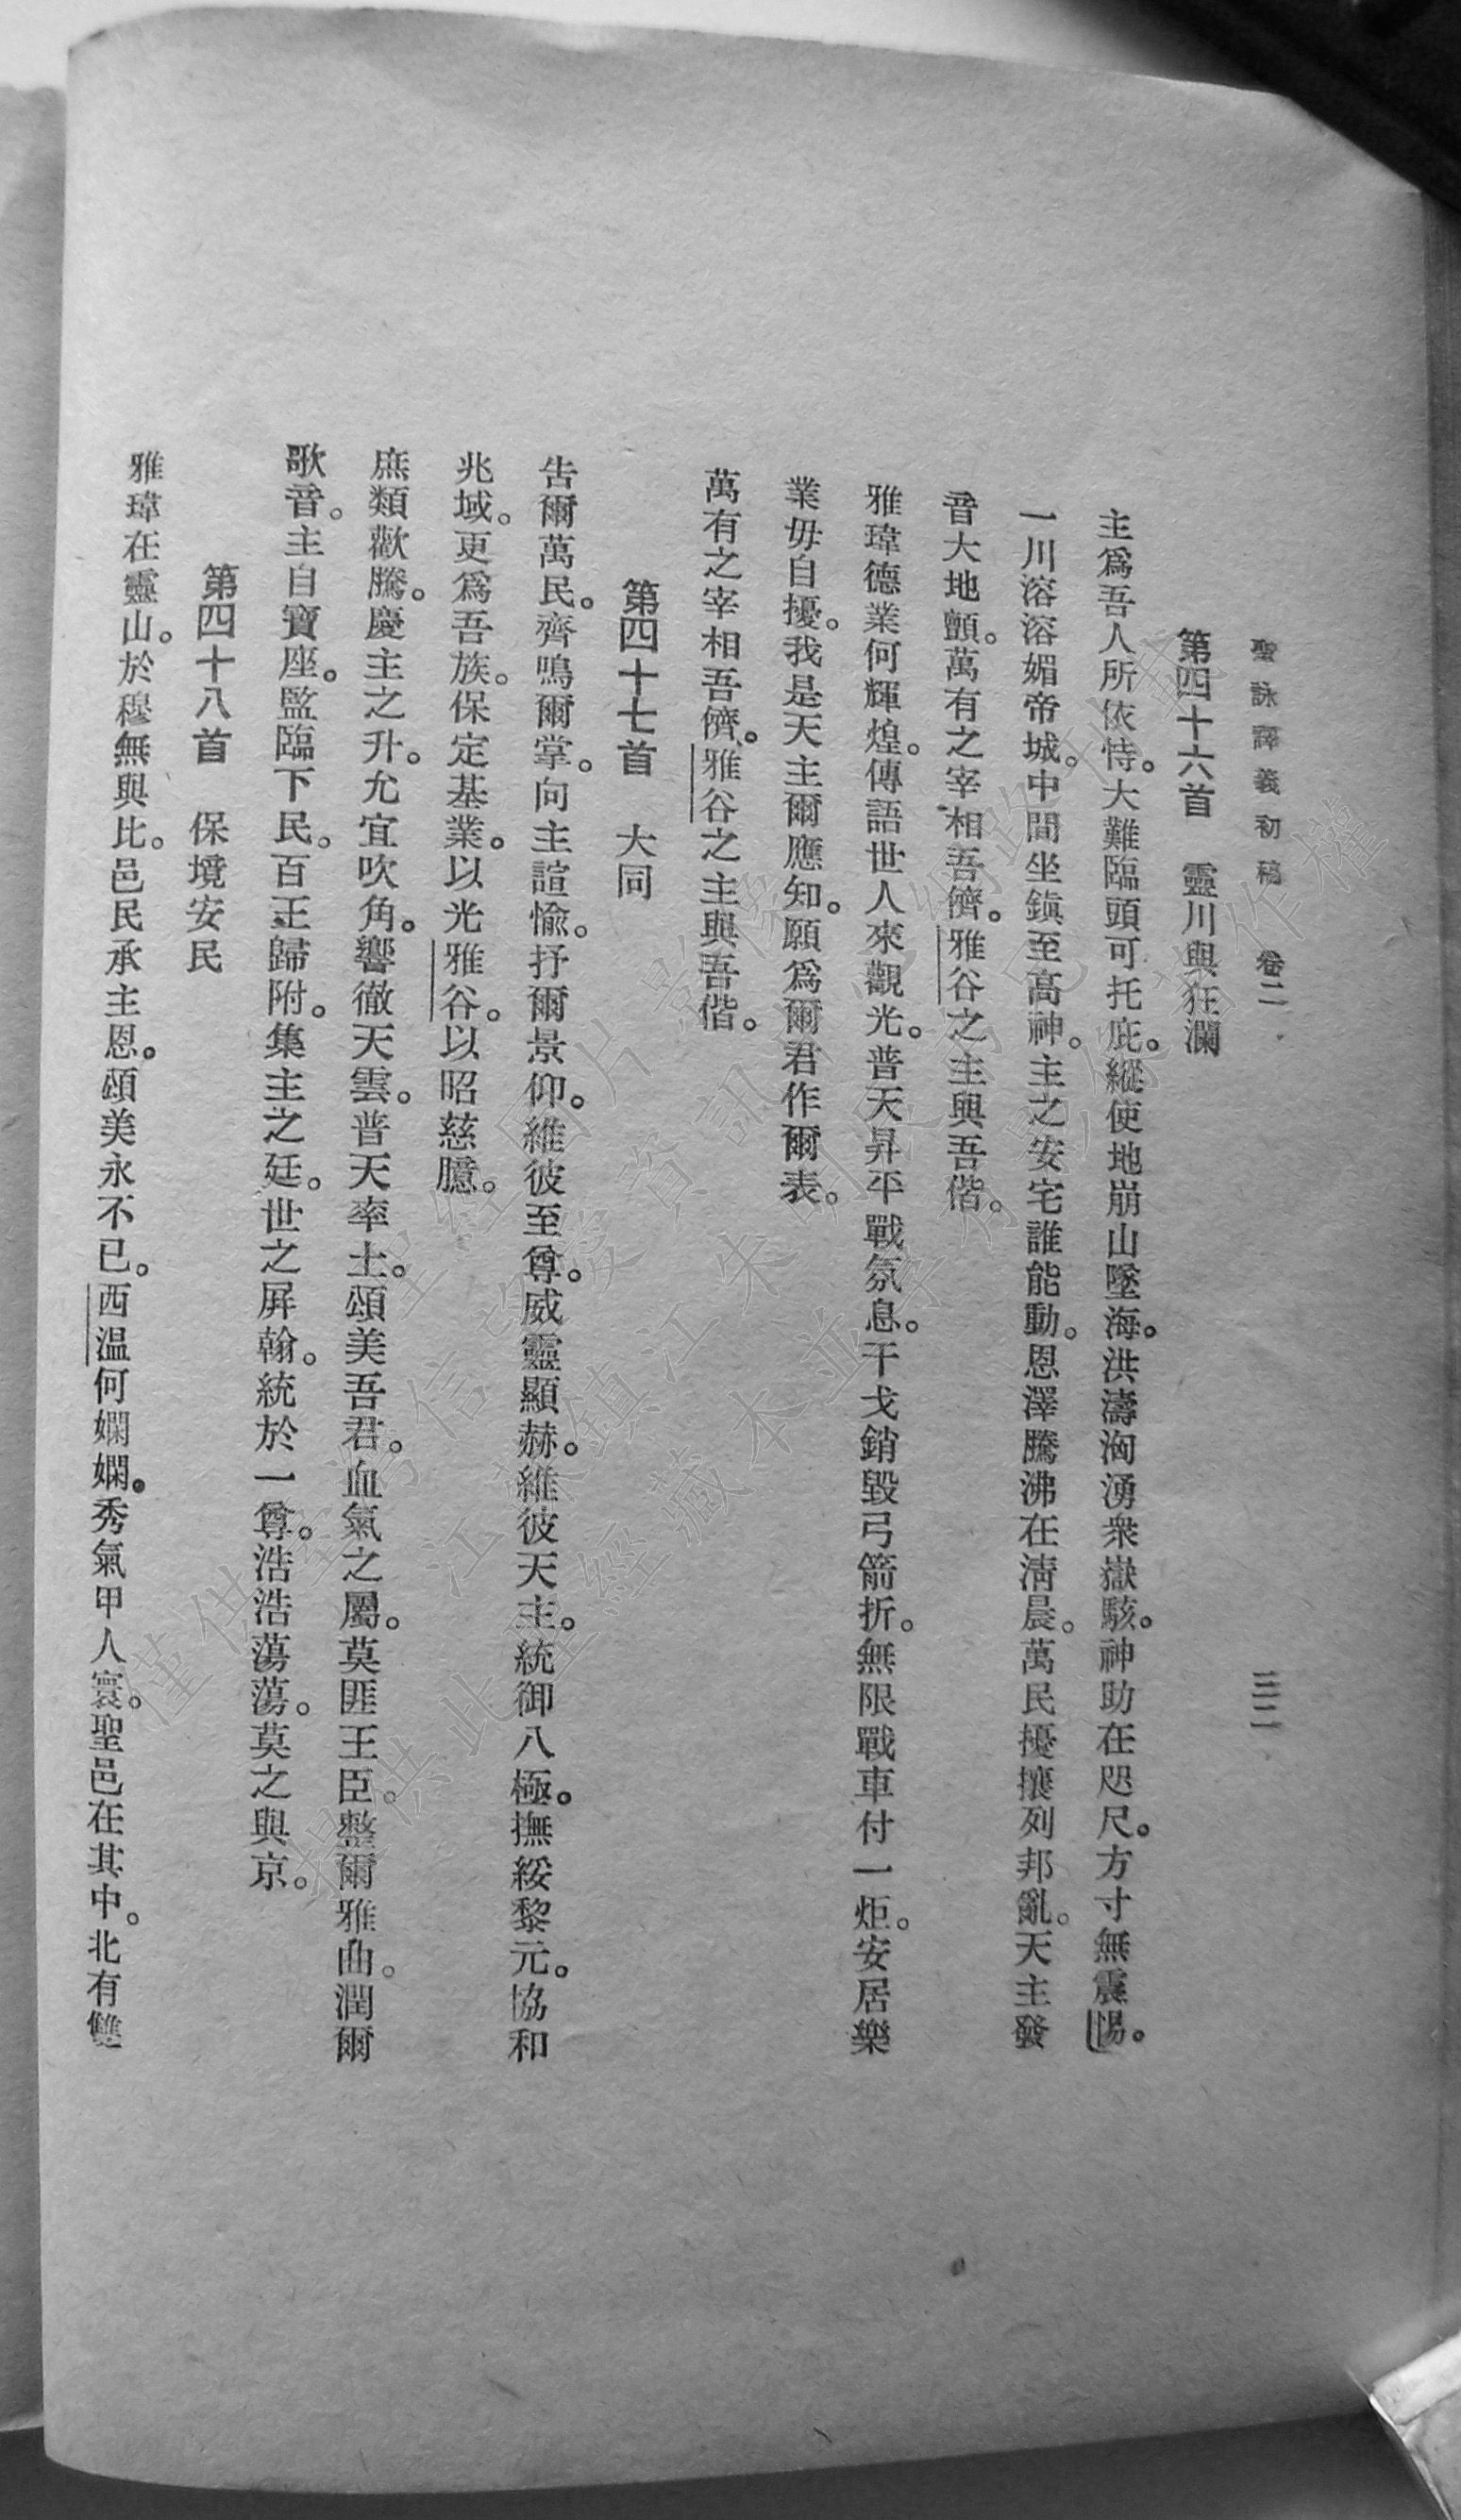 聖詠譯義初稿　卷二　三二
第四十六首　靈川與狂瀾
主爲吾人所依恃。大難臨頭可托庇。縱使地崩山墜海。洪濤洶湧衆嶽駭。神助在咫尺。方寸無震惕。
一川溶溶媚帝城。中間坐鎮至高神。主之安宅誰能動。恩澤騰沸在淸晨。萬民擾攘列邦亂。天主發
音大地顫。萬有之宰相吾儕。雅谷之主與吾偕。
雅瑋德業何輝煌。傳語世人來觀光。普天昇平戰氛息。干戈銷毀弓箭折。無限戰車付一炬。安居樂
業毋自擾。我是天主爾應知。願爲爾君作爾表。
萬有之宰相吾儕。雅谷之主與吾偕。
第四十七首　大同
吿爾萬民。齊鳴爾掌。向主諠愉。抒爾景仰。維彼至尊。威靈顯赫。維彼天主。統御八極。撫綏黎元。協和
兆域。更爲吾族。保定基業。以光雅谷。以昭慈臆。
庶類歡騰。慶主之升。允宜吹角。響徹天雲。普天率土。頌美吾君。血氣之屬。莫匪王臣。整爾雅曲。潤爾
歌音。主自寶座。監臨下民。百王歸附。集主之廷。世之屛翰。統於一尊。浩浩蕩蕩。莫之與京。
第四十八首　保境安民
雅瑋在靈山。於穆無與比。邑民承主恩。頌美永不已。西溫何嫻嫻。秀氣甲人寰。聖邑在其中。北有雙